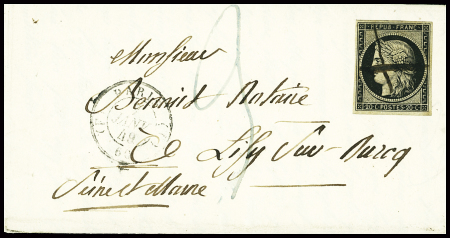 REPUB. FRANC.
Monsieur
20 C POSTES 20 C
PAR
Notaire
49
à Lisy Sur Ourcq
Seine et Marne